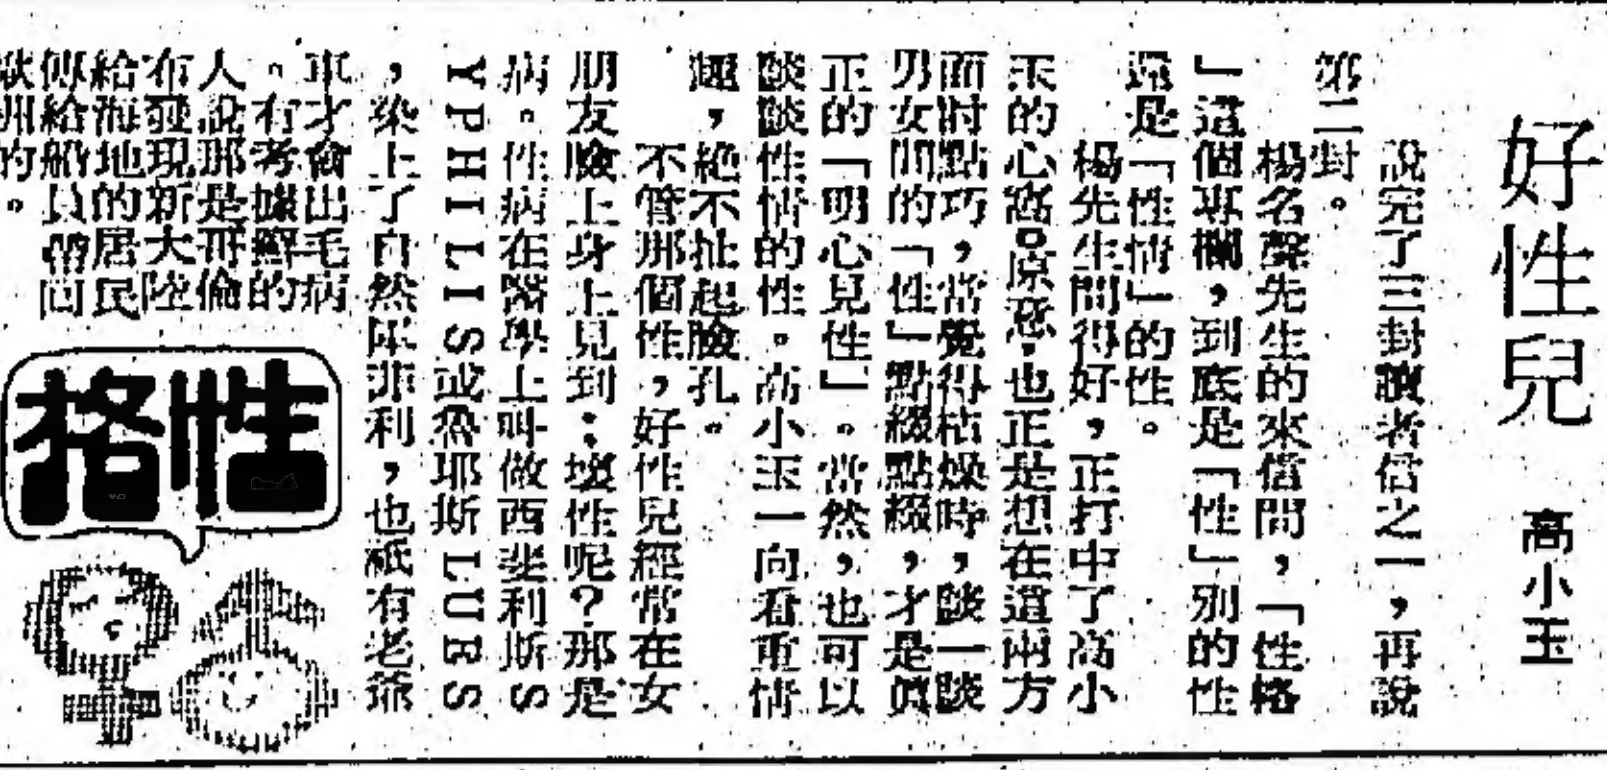 好性兒
高小玉
說完了三封讀者信之一，再說
第二封。
楊名聲先生的來信問，「性格
」這個專欄，到底是「性」別的性
還是「性情」的性。
楊先生問得好，正打中了高小
玉的心窩。原意也正是想在這兩方
面討點巧，當覺得枯燥時，談一談
男女間的「性」點綴點綴，才是真
正的「明心見性」。當然，也可以
談談性情的性。高小玉一向看重情
趣，絕不扯起臉孔。
不管那個性，好性兒經常在女
朋友臉上身上見到；壞性呢？那是
病。性病在醫學上叫做西斐利斯S
YPHILIS或魯耶斯LUES
，染上了自然犀非利，也祇有老爺
車才會出毛病
。有考據癖的
人說那是哥倫
布發現新大陸
給海地的居民
傳給船員帶回
歐洲的。
性格